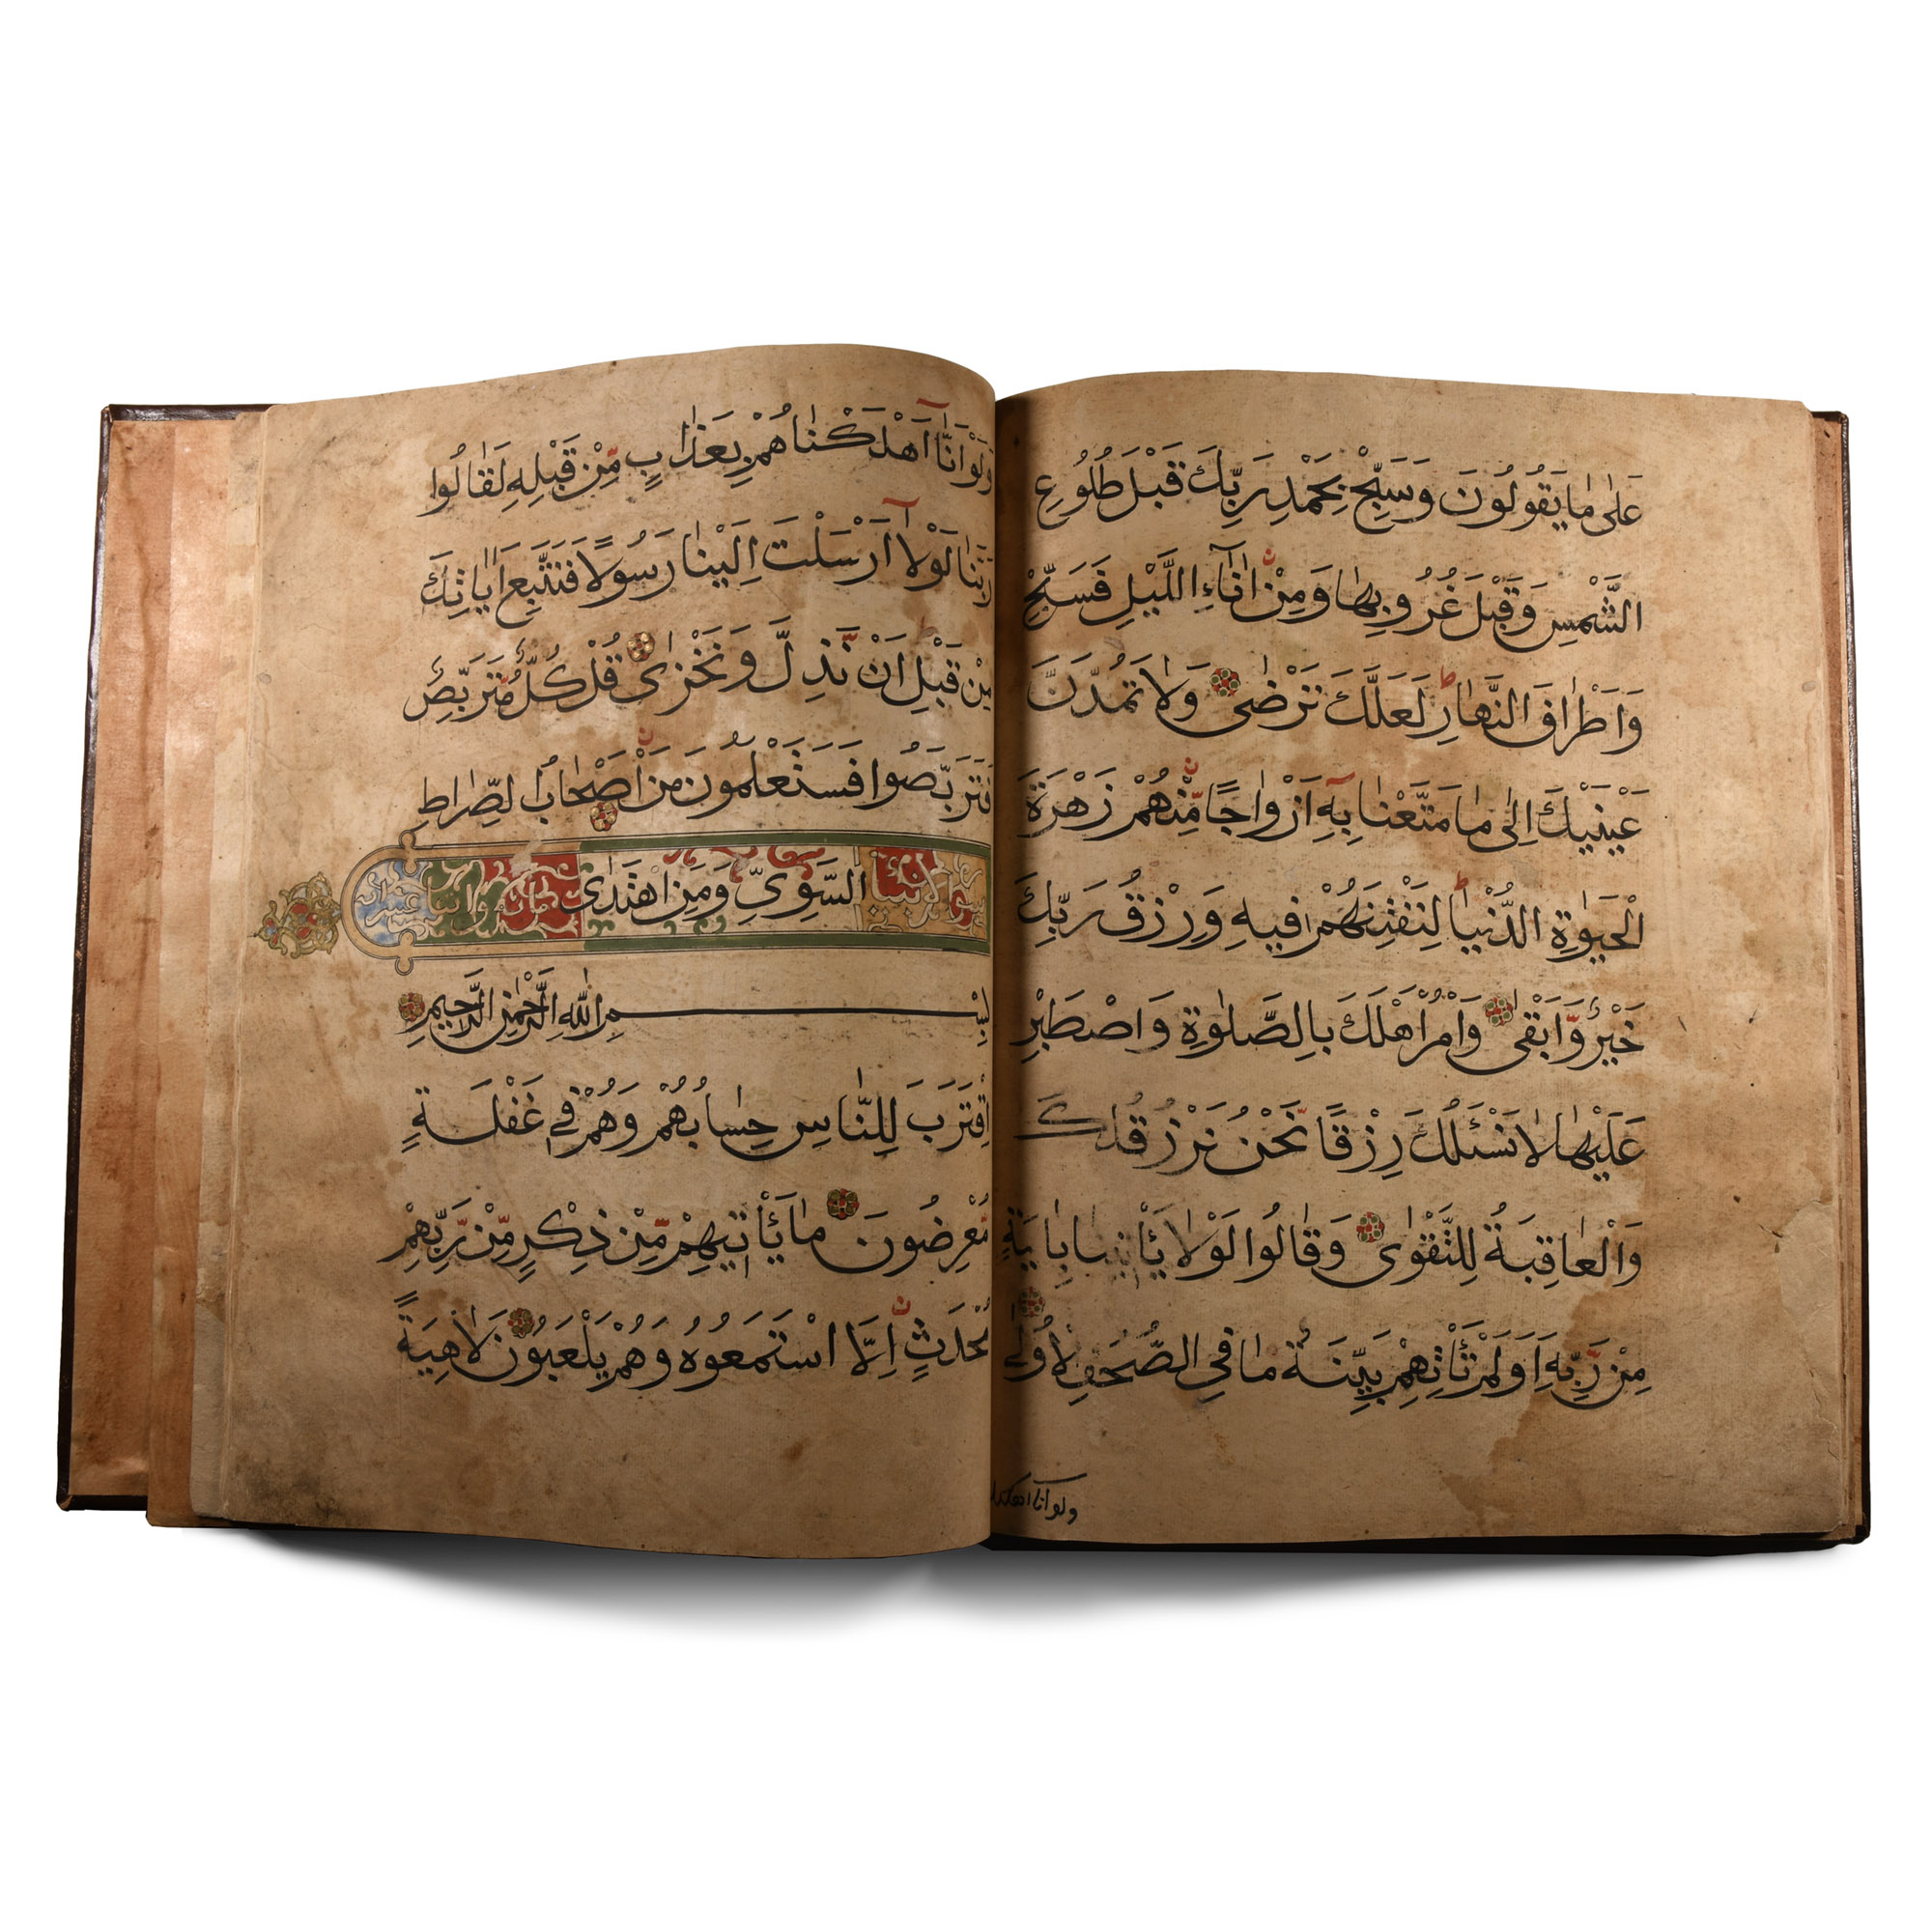 عَلٰى مٰا يَقُولُونَ وَسَبِّحْ بِحَمْدِ رَبِّكَ قَبْلَ طُلُوعِ
الشَّمْسِ وَقَبْلَ غُرُوبِهٰا وَمِنْ اٰنٰآءِ اللَّيْلِ فَسَبِّحْ
وَاَطْرٰافَ النَّهٰارِ لَعَلَّكَ تَرْضٰى وَلٰا تَمُدَّنَّ
عَيْنَيْكَ اِلٰى مٰا مَتَّعْنٰا بِهٖٓ اَزْوٰاجًا مِّنْهُمْ زَهْرَةَ
الْحَيٰوةِ الدُّنْيٰا لِنَفْتِنَهُمْ فِيهِ وَرِزْقُ رَبِّكَ
خَيْرٌ وَّاَبْقٰى وَاْمُرْ اَهْلَكَ بِالصَّلٰوةِ وَاصْطَبِرْ
عَلَيْهٰا لٰا نَسْئَلُكَ رِزْقًا نَّحْنُ نَرْزُقُكَ
وَالْعٰاقِبَةُ لِلتَّقْوٰى وَقٰالُوا لَوْلٰا يَأْتِينٰا بِاٰيَةٍ
مِنْ رَّبِّهٖ اَوَلَمْ تَأْتِهِمْ بَيِّنَةُ مٰا فِي الصُّحُفِ الْاُولٰى
ولو انا اهلكنا
وَلَوْ اَنَّآ اَهْلَكْنٰاهُمْ بِعَذٰابٍ مِّنْ قَبْلِهٖ لَقٰالُوا
رَبَّنٰا لَوْلٰآ اَرْسَلْتَ اِلَيْنٰا رَسُولًا فَنَتَّبِعَ اٰيٰاتِكَ
مِنْ قَبْلِ اَنْ نَّذِلَّ وَنَخْزٰى قُلْ كُلٌّ مُّتَرَبِّصٌ
فَتَرَبَّصُوا فَسَتَعْلَمُونَ مَنْ اَصْحٰابُ الصِّرٰاطِ
السَّوِيِّ وَمَنِ اهْتَدٰى
بِسْمِ اللّٰهِ الرَّحْمٰنِ الرَّحِيمِ
اِقْتَرَبَ لِلنَّاسِ حِسٰابُهُمْ وَهُمْ فِي غَفْلَةٍ
مُّعْرِضُونَ مٰا يَأْتِيهِمْ مِّنْ ذِكْرٍ مِّنْ رَّبِّهِمْ
مُّحْدَثٍ اِلَّا اسْتَمَعُوهُ وَهُمْ يَلْعَبُونَ لٰاهِيَةً